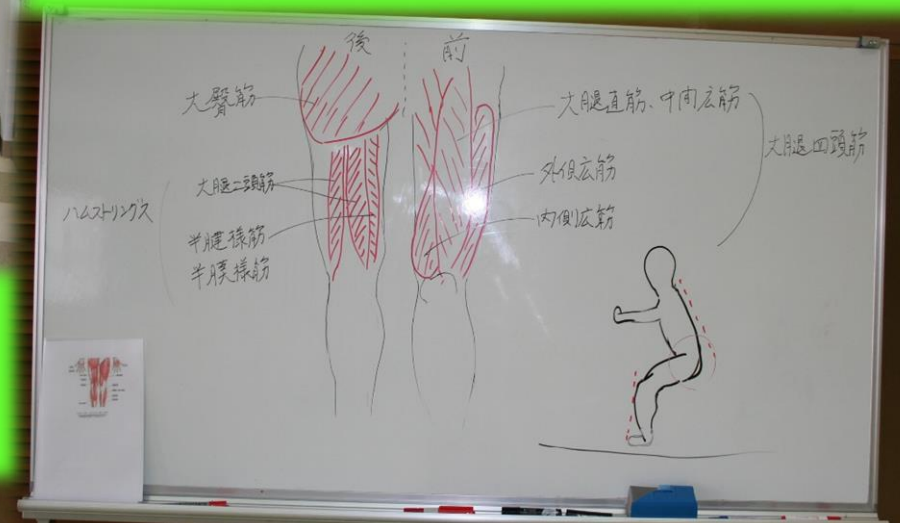 後
前
大臀筋
大腿二頭筋
ハムストリングス
半腱様筋
半膜様筋
大腿直筋、中間広筋
外側広筋
内側広筋
大腿四頭筋